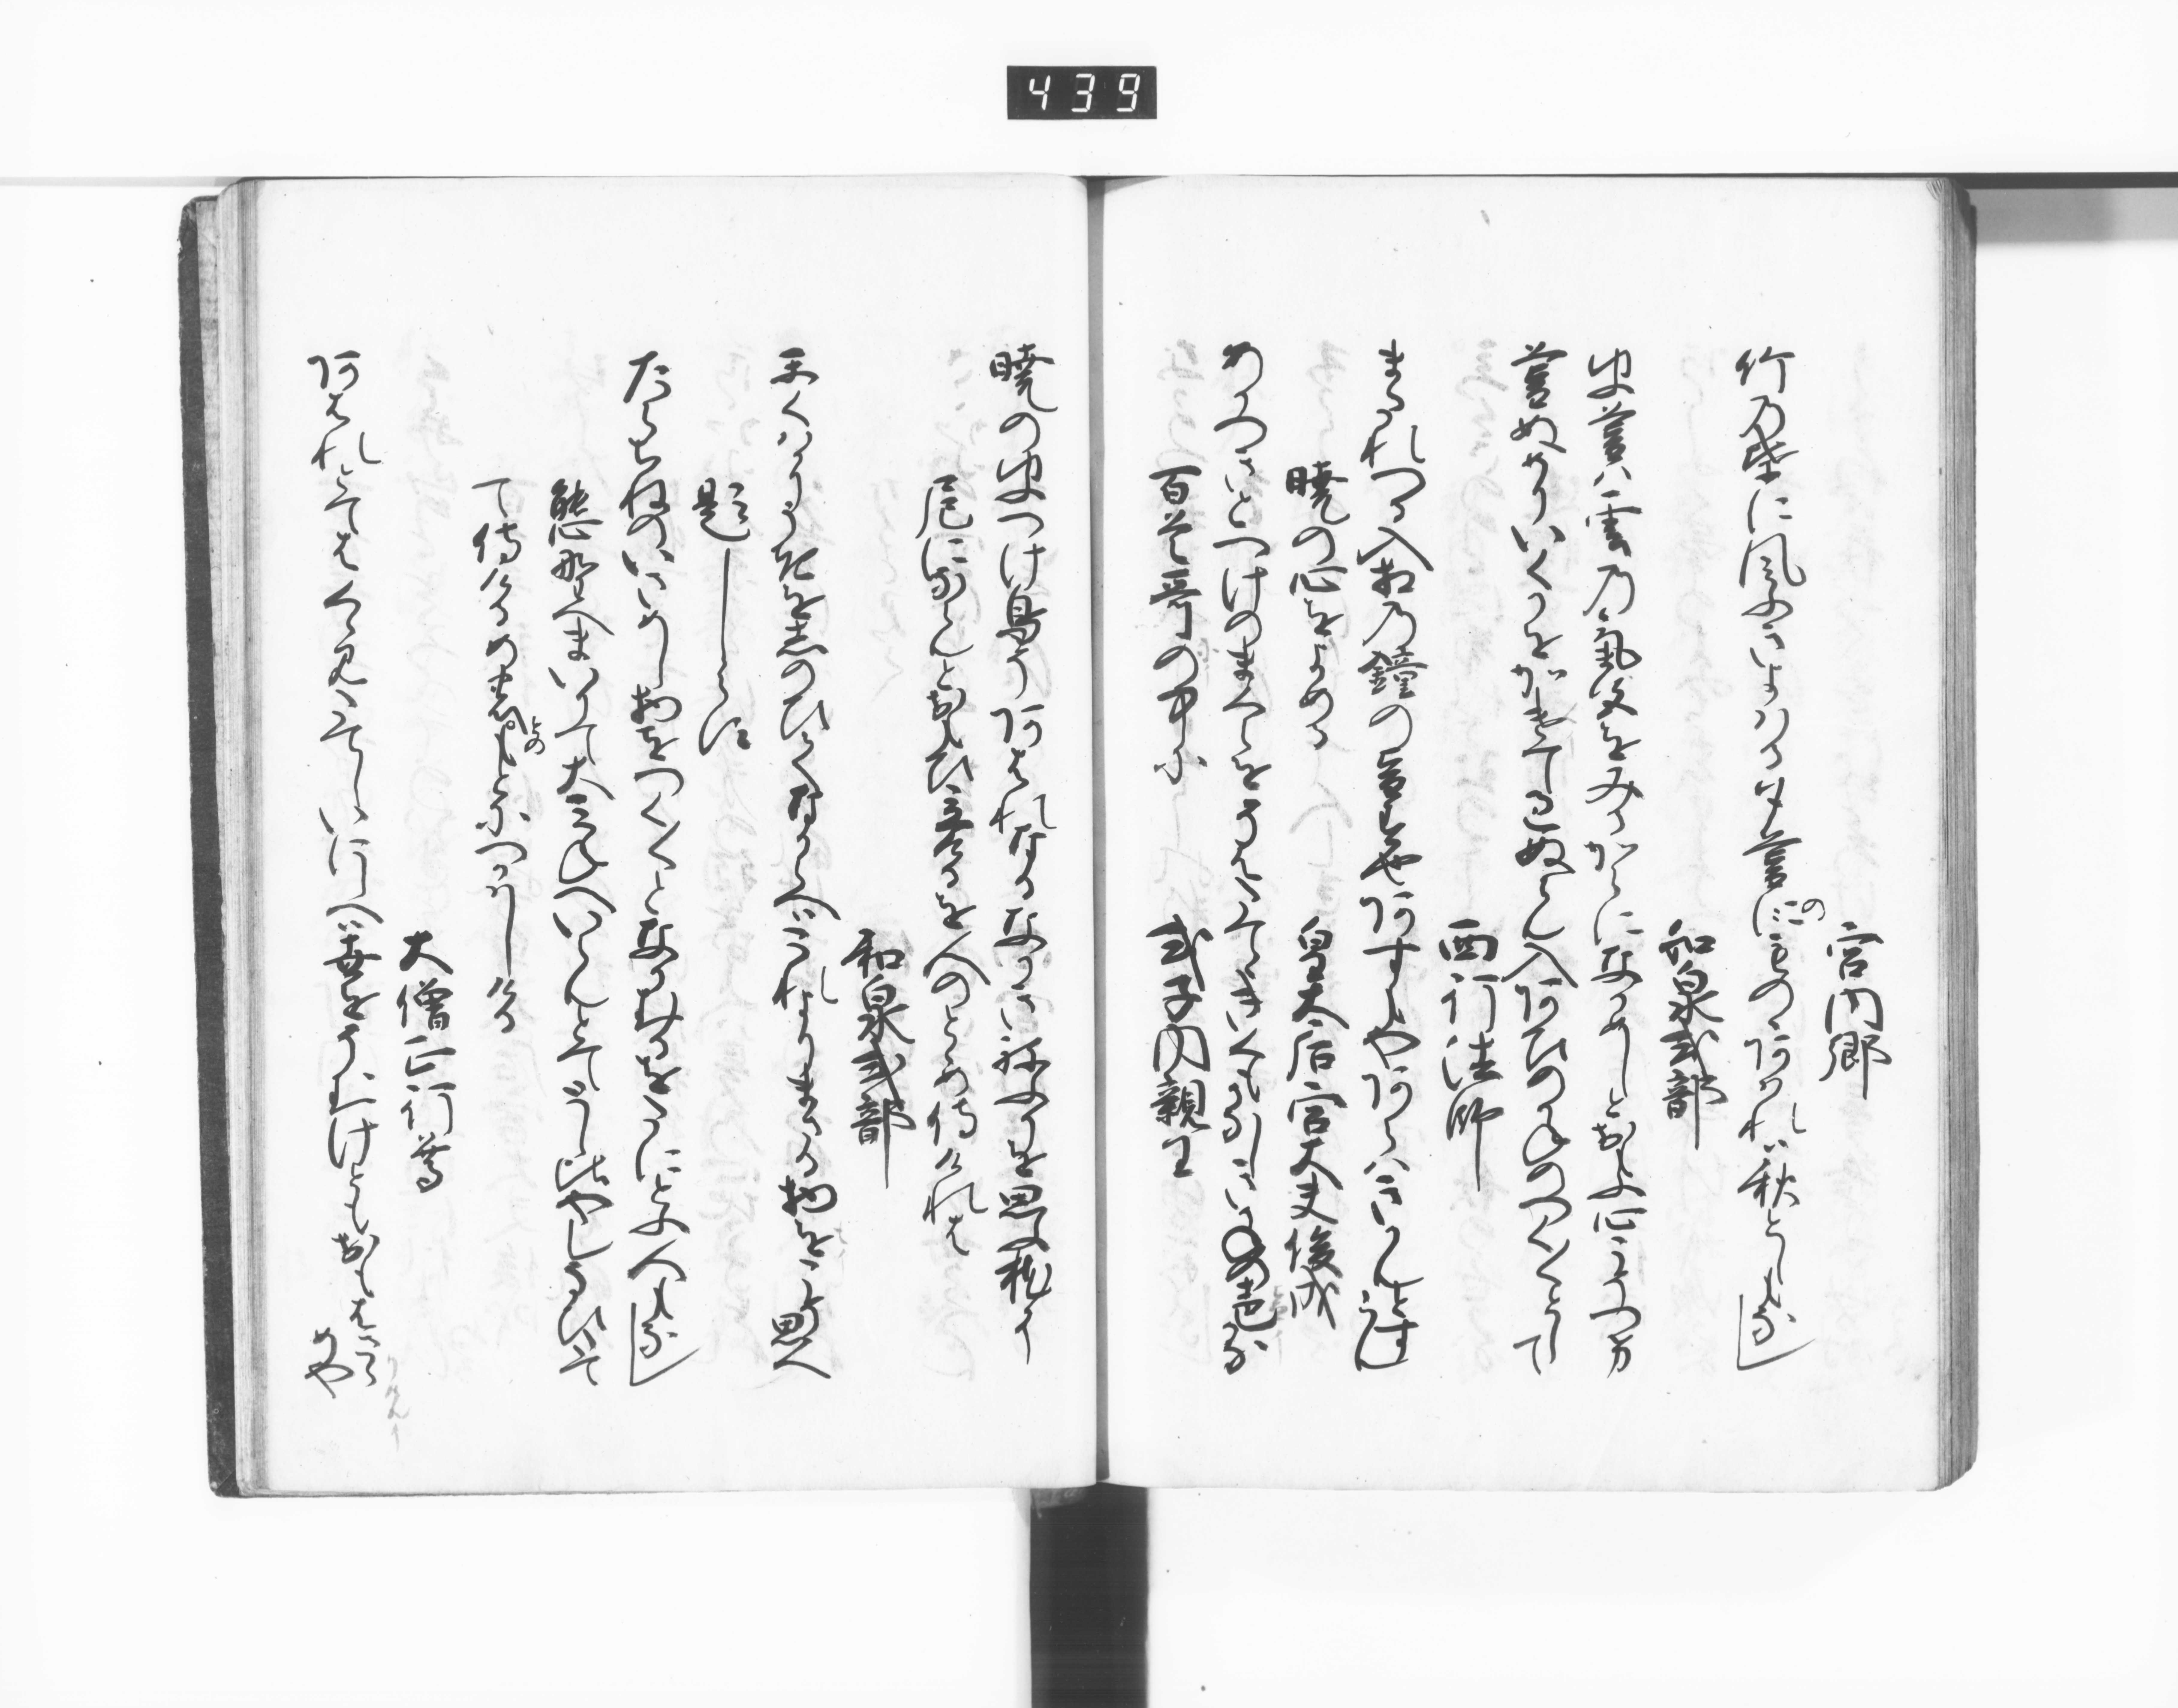 439
宮内卿
竹乃葉に風ふきよはる夕暮にものゝあはれは秋としもなし
の
和泉式部
夕暮ハ雲乃気色をみるからになかめしとおもふ心こそつけ
暮ぬめりいくかをかきてすきぬらん入あひのかねのつく〳〵として
西行法師
またれつる入相乃鐘の音す也あすもやあらハきかんとすらむ
暁の心をよめる
皇太后宮大夫俊成
あかつきとつけのまくらをそはたてゝきくもかなしきかねの音かな
百首哥の中に
式子内親王
暁の夕つけ鳥そあはれなるなかきねふりを思ふ枕に
尼にならんとおもひ立けるを人のとゝめ侍けれは
和泉式部
かくハかりうきを忍ひてなからへはこれよりまさる物をこそ思へ
題しらす
たらちねのいさめし物をつく〳〵となかむるをたにとふ人もなし
熊野へまいりて大みねへいらんとてとし比やしなひたて
て侍けるめのとのもとにつかはしける
大僧正行尊
あはれとてはくゝみたてしいにしへは世をそむけともおもはさら
めや